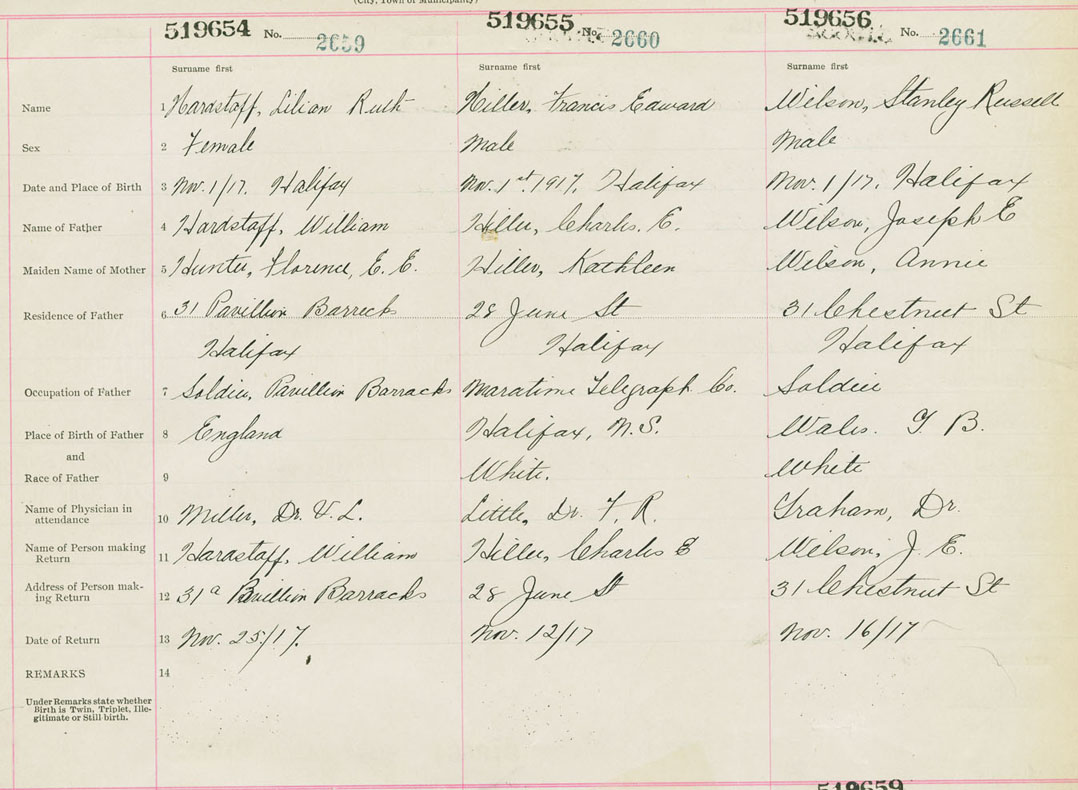 (City, Town or Municipality)
519654 No. 2659 519655 No. 2660 519656 No. 2661
Surname first Surname first Surname first
Name 1 Hardstaff, Lilian Ruth Hiller, Francis Edward Wilson, Stanley Russell
Sex 2 Female Male Male
Date and Place of Birth 3 Nov. 1/17. Halifax Nov. 1st 1917. Halifax Nov. 1/17. Halifax
Name of Father 4 Hardstaff, William Hiller, Charles. E. Wilson, Joseph E
Maiden Name of Mother 5 Hunter, Florence, E. E. Hiller, Kathleen Wilson, Annie
Residence of Father 6 31 Pavillion Barrecks 28 June St 31 Chestnut St
Halifax Halifax Halifax
Occupation of Father 7 Soldier, Pavillion Barracks Maratime Telegraph Co. Soldier
Place of Birth of Father 8 England Halifax, N.S. Wales. G B.
and
Race of Father 9 White. White
Name of Physician in
attendance 10 Miller, Dr. V. L. Little, Dr. F. R. Graham, Dr.
Name of Person making
Return 11 Hardstaff, William Hiller, Charles E Wilson, J. E.
Address of Person mak-
ing Return 12 31a Pavillion Barracks 28 June St 31 Chestnut St
Date of Return 13 Nov. 25/17. Nov. 12/17 Nov. 16/17
REMARKS 14
Under Remarks state whether
Birth is Twin, Triplet, Ille-
gitimate or Still-birth.
519659